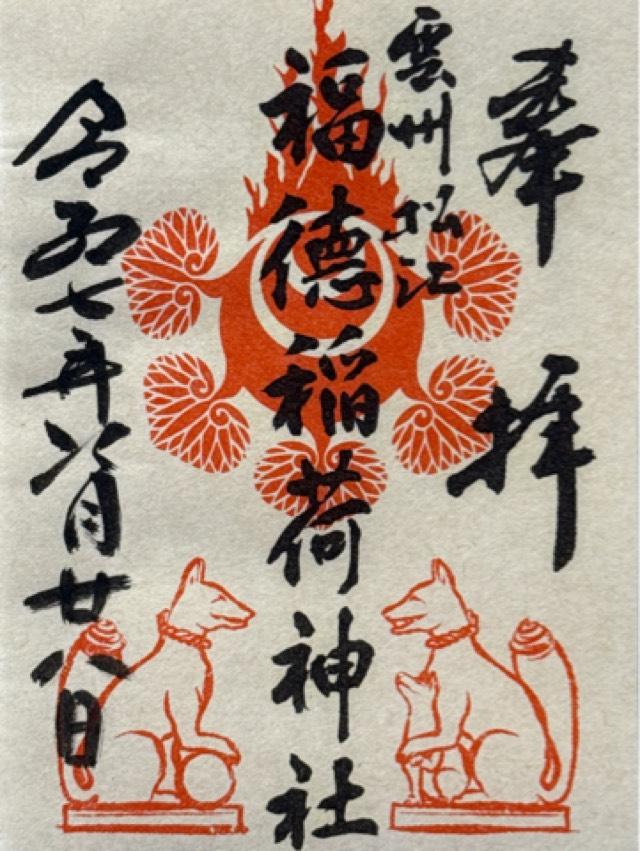 奉拝
雲州松江
福徳稲荷神社
令和七年八月廿八日